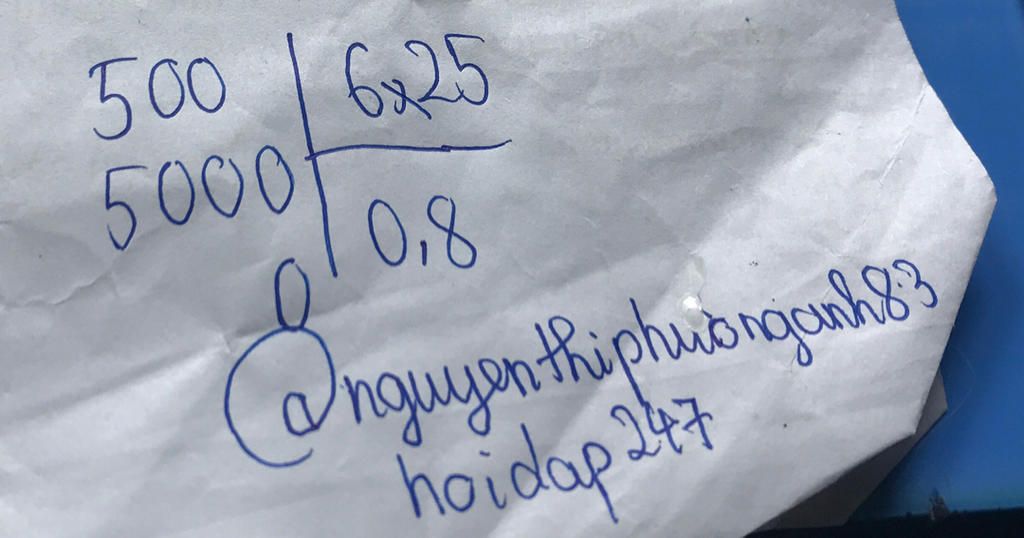 500 6x25
5000 0,8
0
@nguyenthiphuonganh83
hoidap247